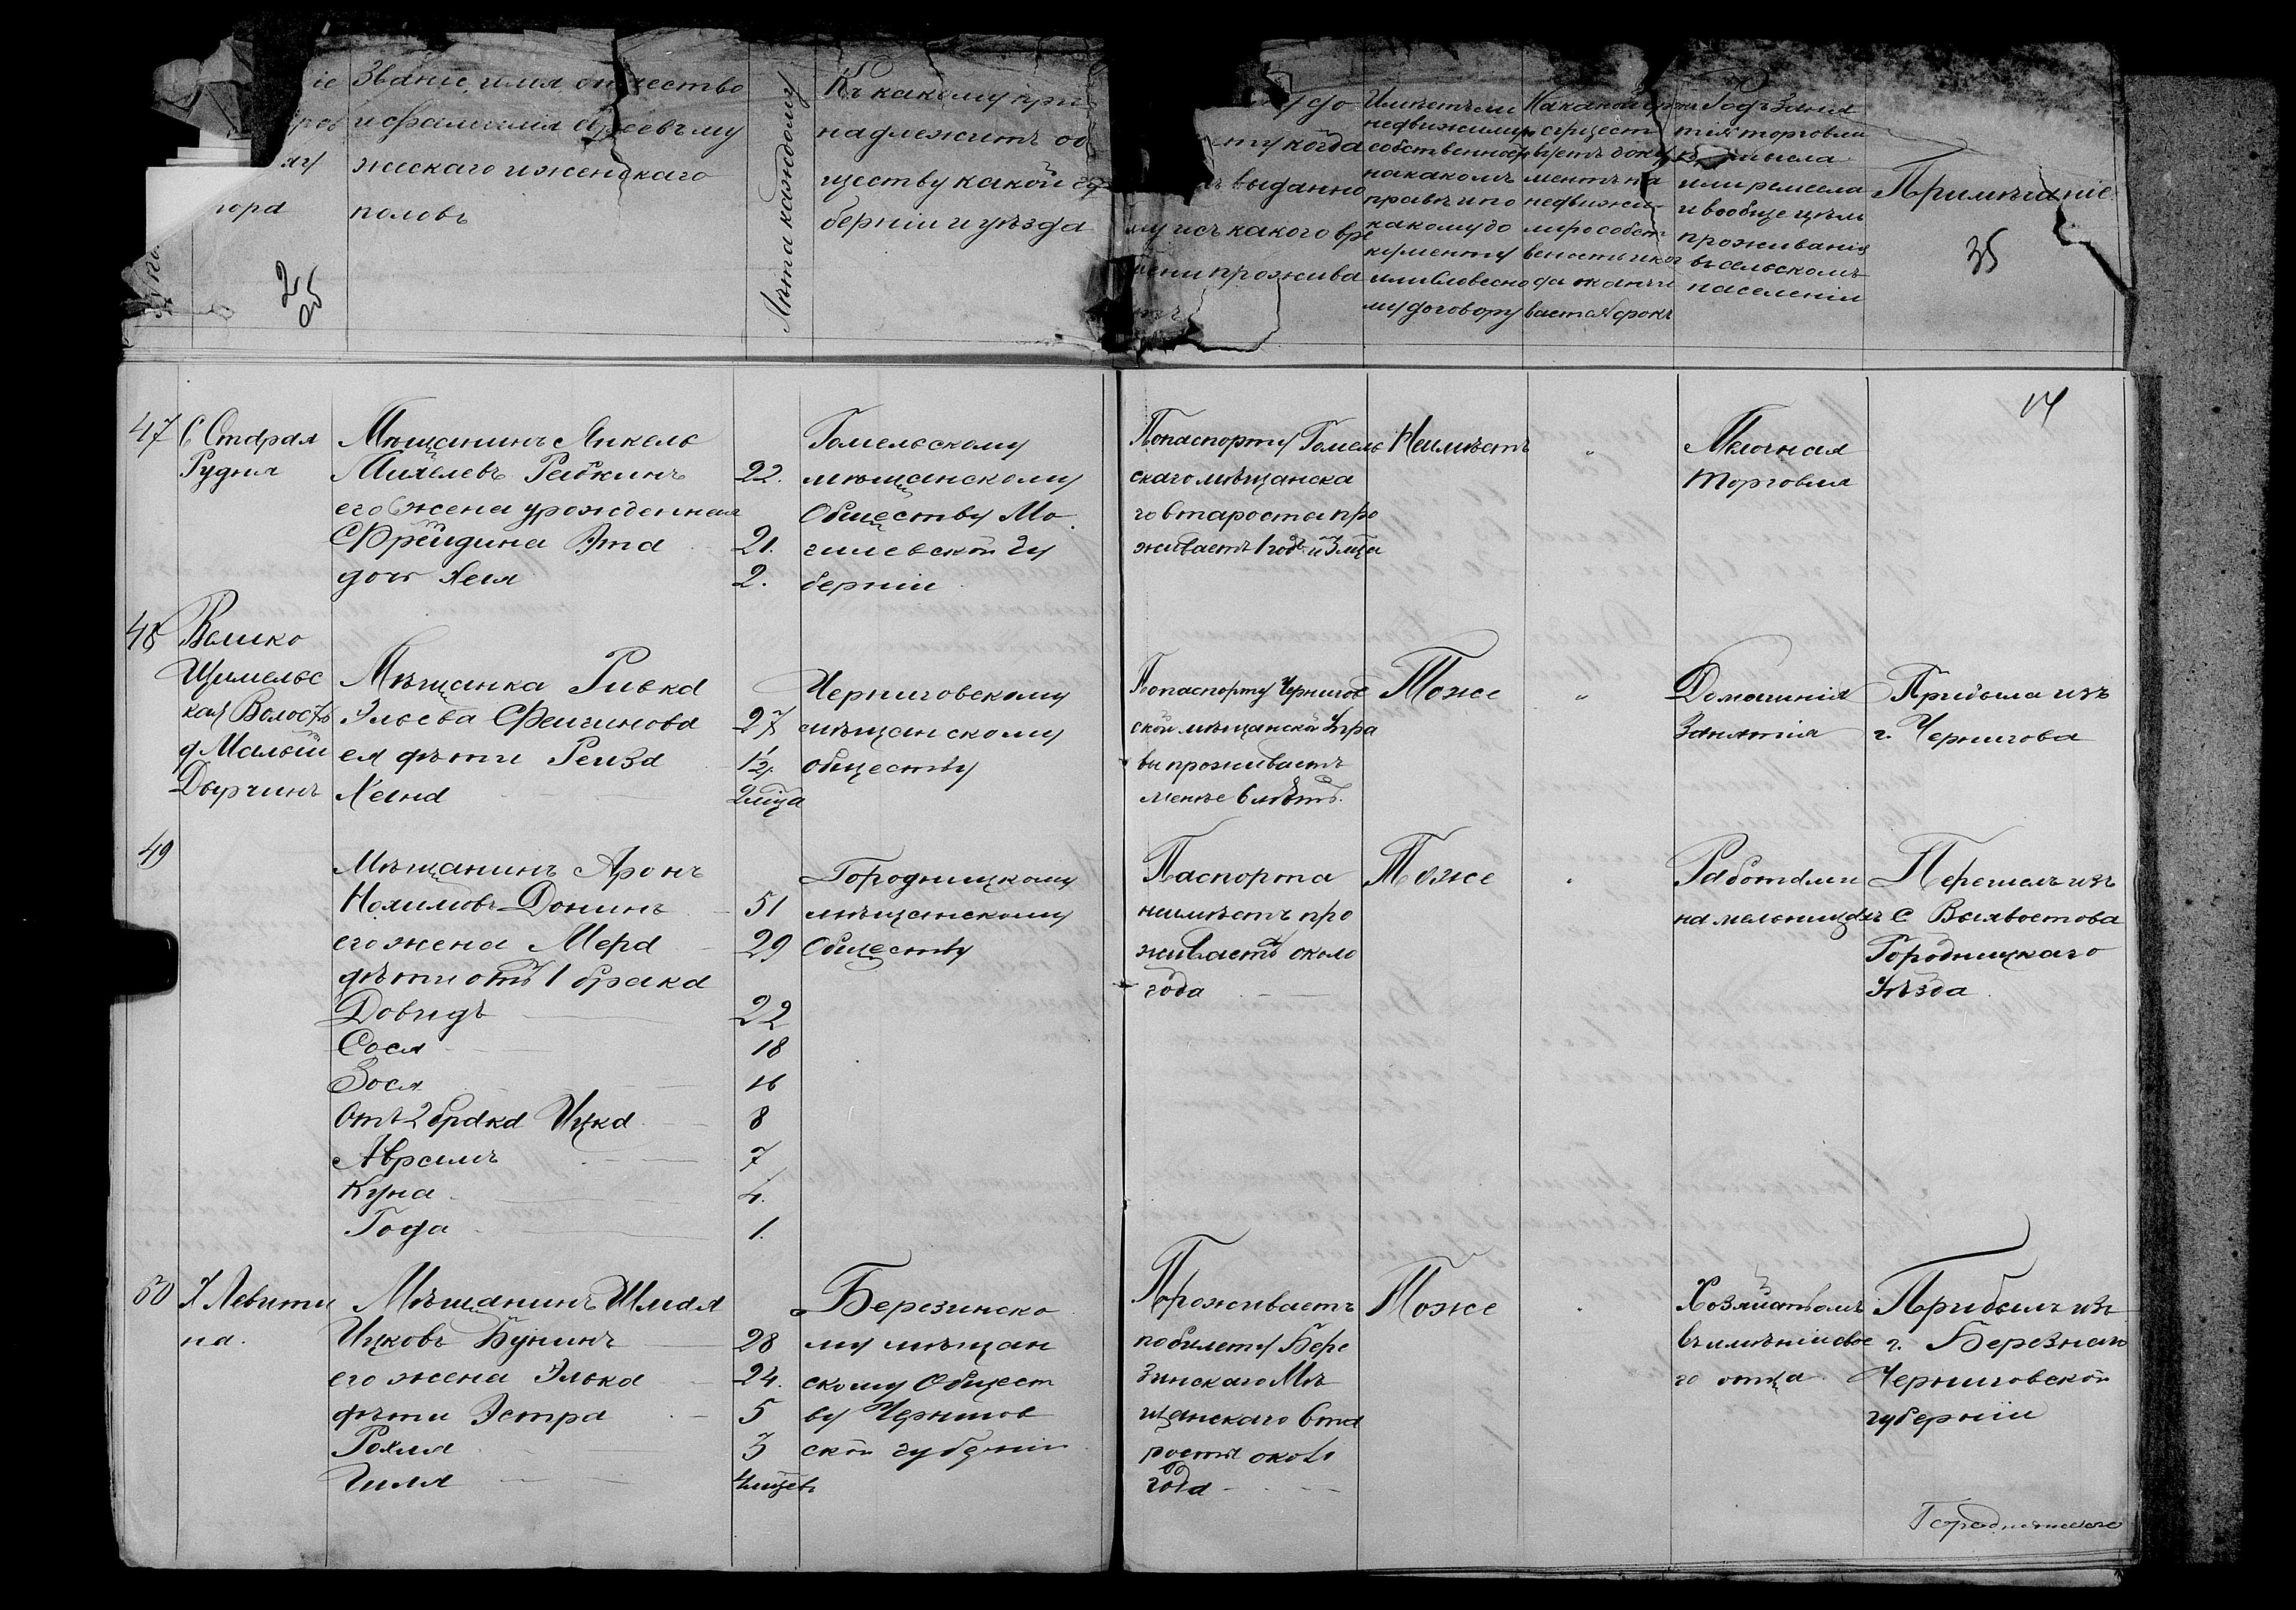 Званіе, имя отчество
и фамилія евреевъ му
жескаго и женскаго
половъ
Лѣта каждому
Къ какому при
надлежитъ об
ществу какой гу
берніи и уѣзда
когда
выданно
му и съ какого вре
мени прожива
Имѣетъ ли
недвижимую
собственность
на какомъ
правѣ и по
какому до
кументу
или словесно
му договору
На какой срокъ
сущест
вуетъ доку
ментъ на
недвижи
мую собст
венность и ког
да оканчи
вается срокъ
Родъ заня
тія торговли
промысла
или ремесла
и вообще цѣль
проживанія
въ сельскомъ
населеніи
Примѣчаніе
25
35
14
47
С Старая
Рудня
Мѣщанинъ Янкель
Михелевъ Рабкинъ
22.
его жена урожденная
Фрейдина Эта
21.
доч Хея
2.
Гомельскому
мѣщанскому
Обществу Мо
гилевской Гу
берніи
По паспорту Гомель
скаго мѣщанска
го старосты про
живаетъ 1 годъ и 3 мца
Неимѣетъ
"
Мелочная
торговля
48
Велико
Щимельс
кая Волость
д Малый
Дырчинъ
Мѣщанка Ривка
Эльева Фейгинова
27
ея дѣти Рейза
1½.
Хеяна
2 мца
Черниговскому
мѣщанскому
обществу
По паспорту Чернигов
ской мѣщанской Упра
вы проживаетъ
менѣе 6 лѣтъ.
Тоже
"
Домашнія
Занятія
Прибыла изъ
г. Чернигова
49
Мѣщанинъ Аронъ
Нохимовъ Донинъ
51
его жена Мера
29
дѣти отъ 1 брака
Довидъ
22
Сося
18
Зося
16
Отъ 2 брака Ицка
8
Аврамъ
7
Куна
4.
Года
1.
Городницкому
мѣщанскому
Обществу
Паспорта
неимѣетъ про
живаетъ около
года
Тоже
Работами
на мельницахъ
Перешелъ изъ
с Выхвостова
Городницкаго
Уѣзда
50
Х Левити
на.
Мѣщанинъ Шмая
Ицковъ Бунинъ
28
его жена Элька
24.
дѣти Эстра
5
Рохля
3
Гиля
4 мцевъ
Березинско
му мѣщан
скому Общест
ву Чернигов
ской губерніи
Проживаетъ
по билету Бере
зинскаго Мѣ
щанскаго Ста
росты около
года
Тоже
Хозяйствомъ
въ имѣніи свое
го отца
Прибылъ изъ
г. Березнаго
Черниговской
губерніи